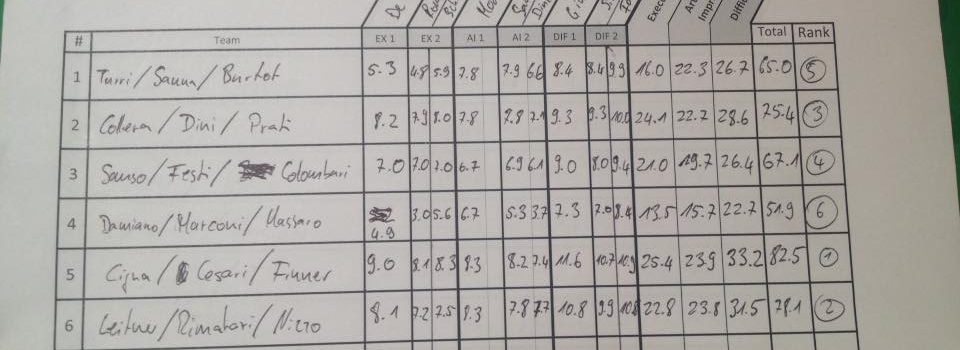 # Team EX 1 EX 2 AI 1 AI 2 DIF 1 DIF 2 Total Rank
1 Turri/Sauna/Burtot 5.3 4.8 5.9 7.8 7.9 6.6 8.4 8.4 9.9 16.0 22.3 26.7 65.0 5
2 Collera/Dini/Prati 8.2 7.9 8.0 7.8 7.8 7.1 9.3 9.3 10.0 24.1 22.7 28.6 75.4 3
3 Sanso/Festi/Colombari 7.0 7.0 7.0 6.7 6.9 6.1 9.0 8.0 9.4 21.0 19.7 26.4 67.1 4
4 Damiano/Marconi/Massaro 4.9 3.0 5.6 6.7 5.3 3.7 7.3 7.0 8.4 13.5 15.7 22.7 51.9 6
5 Cigna/Cesari/Finner 9.0 8.1 8.3 8.3 8.2 7.4 11.6 10.7 10.9 25.4 23.9 33.2 82.5 1
6 Leitner/Rimatori/Nizzo 8.1 7.2 7.5 8.3 7.8 7.7 10.8 9.9 10.8 22.8 23.8 31.5 78.1 2